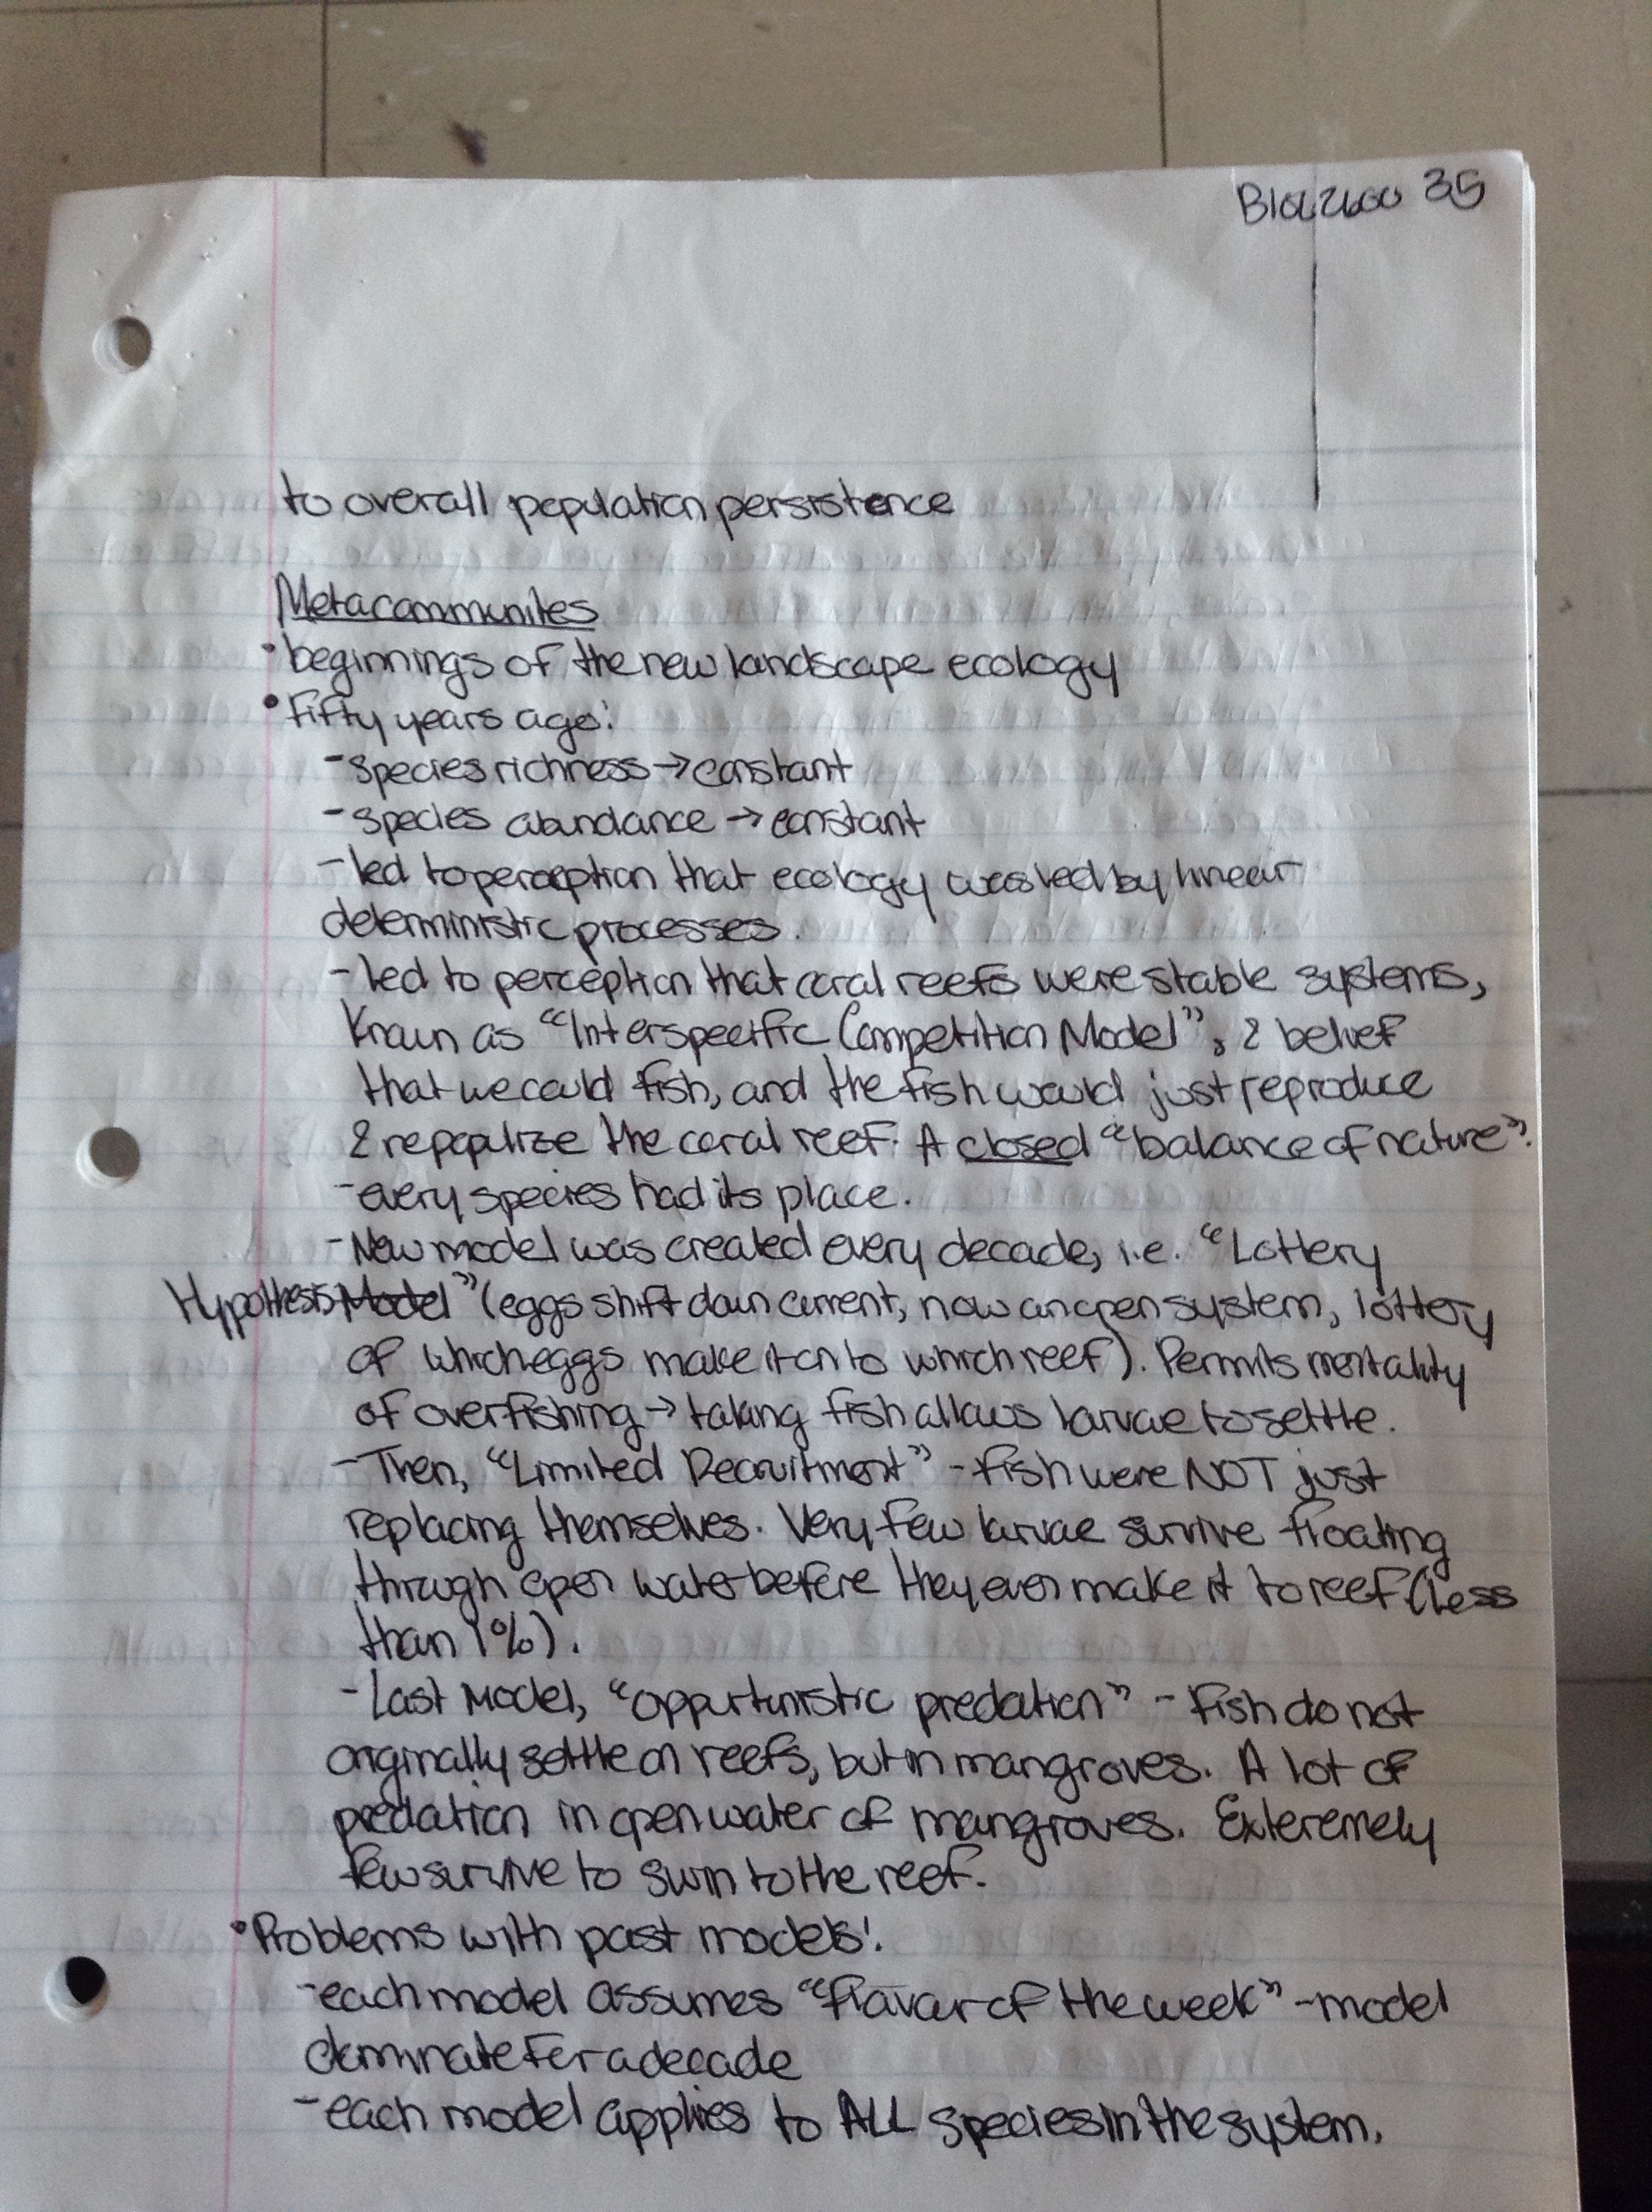 35
to overall population persistence
Metacommunites
• beginnings of the new landscape ecology
• Fifty years ago:
- species richness → constant
- species abundance → constant
- led to perception that ecology was led by linear
deterministic processes.
- led to perception that coral reefs were stable systems,
Known as "Interspecific Competition Model", & belief
that we could fish, and the fish would just reproduce
& repopulize the coral reef. A closed "balance of nature".
- every species had its place.
- New model was created every decade, i.e. "Lottery
Hypothesis Model" (eggs shift down current, now an open system, lottery
of which eggs make it on to which reef). Permits mentality
of overfishing → taking fish allows larvae to settle.
- Then, "Limited Recruitment" - fish were NOT just
replacing themselves. Very few larvae survive floating
through open water before they even make it to reef (less
than 1%).
- Last Model, "oppurtunistic predation" - Fish do not
originally settle on reefs, but in mangroves. A lot of
predation in open water of mangroves. Exteremely
few survive to swim to the reef.
• Problems with past models:
- each model assumes "flavour of the week" - model
dominate for a decade
- each model applies to ALL species in the system.